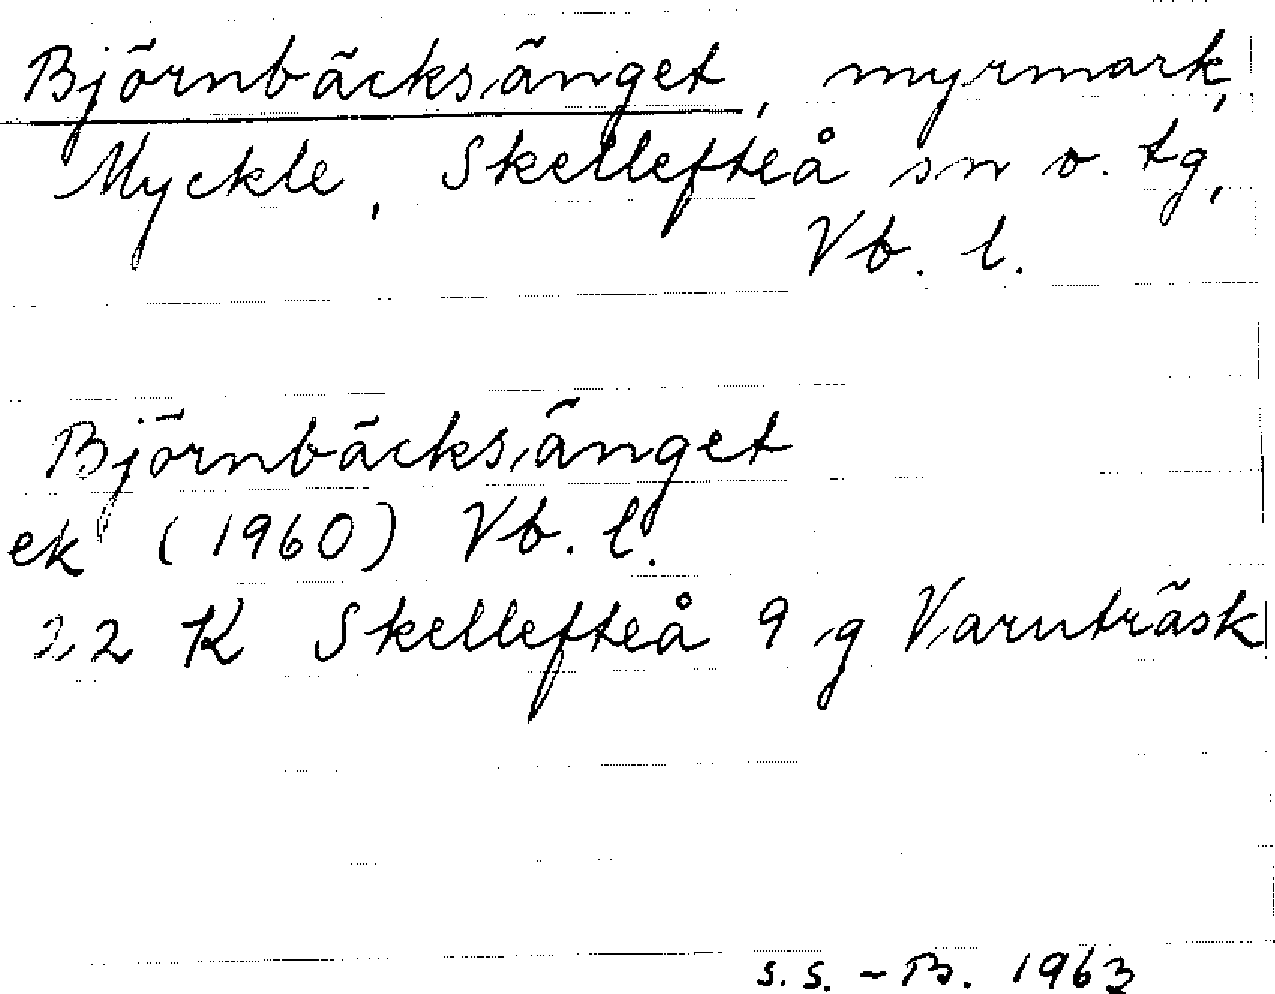 Björnbäcksänget, myrmark,
Myckle, Skellefteå sn o. tg,
Vb. l.
Björnbäcksänget
ek (1960) Vb. l.
22 K Skellefteå 9 g Varuträsk
s.s. - B. 1963